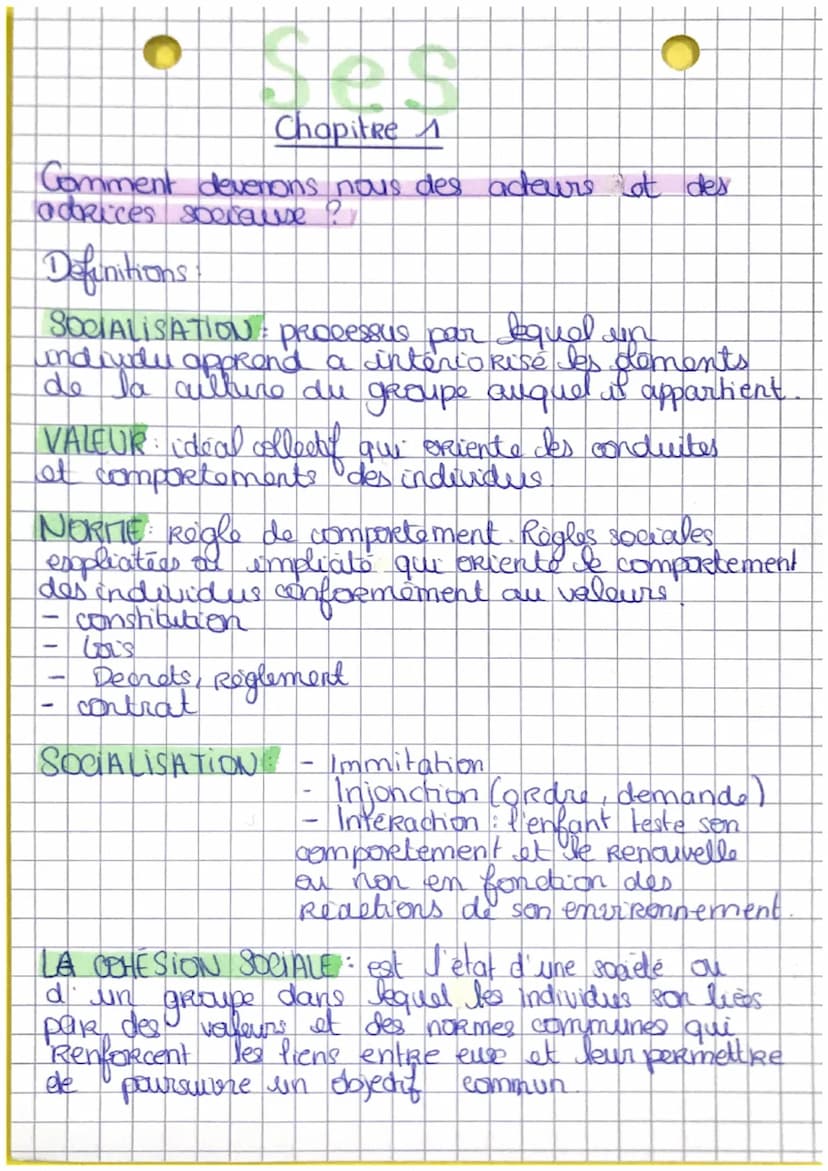 Ses
Chapitre 1
Comment devenons nous des acteurs et des
actrices sociaux ?
Definitions :
SOCIALISATION : processus par lequel un
individu apprend a intériorisé les élements
de la culture du groupe auquel il appartient.
VALEUR : idéal collectif qui oriente des conduites
et comportements des individus
NORME : Règle de comportement. Règles sociales
explicatées ou implicité qui oriente le comportement
des individus conformément au valeurs.
- constitution
- Lois
- Decrets, Règlement
- contrat
SOCIALISATION : - Immitation
- Injonction (ordre, demande)
- Intéraction : l'enfant teste son
comportement et le Renouvelle
ou non en fonction des
Réactions de son environnement.
LA COHÉSION SOCIALE : est l'état d'une société ou
d'un groupe dans lequel les individus son liées
par des valeurs et des normes communes qui
Renforcent les liens entre eux et leur permettre
de poursuivre un objectif commun.